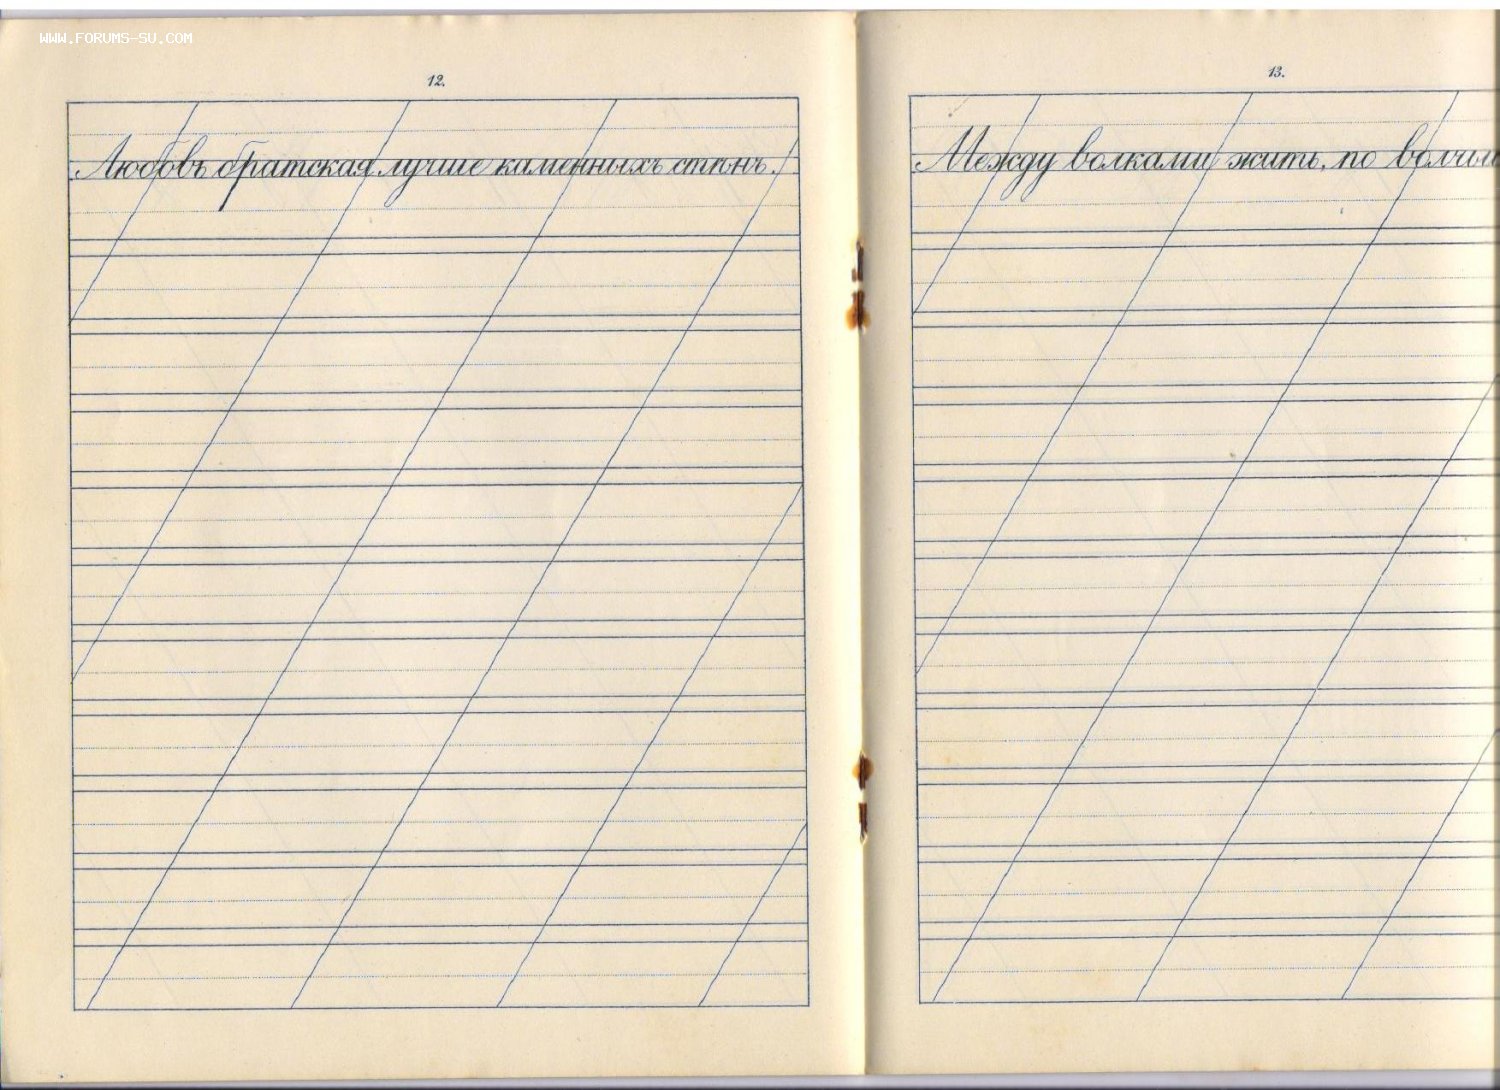 WWW.FORUMS-SU.COM
12.
Любовь братская лучше каменныхъ стѣнъ.
13.
Между волками жить, по